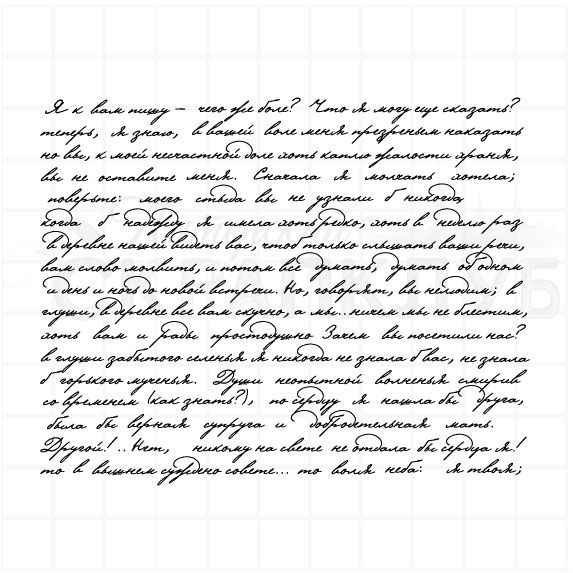 Я к вам пишу – чего же боле? Что я могу еще сказать?
теперь, я знаю, в вашей воле меня презреньем наказать
но вы, к моей несчастной доле хоть каплю жалости храня,
вы не оставите меня. Сначала я молчать хотела;
поверьте: моего стыда вы не узнали б никогда,
когда б надежду я имела хоть редко, хоть в неделю раз
в деревне нашей видеть вас, чтоб только слышать ваши речи,
вам слово молвить, и потом все думать, думать об одном
и день и ночь до новой встречи. Но, говорят, вы нелюдим; в
глуши, в деревне все вам скучно, а мы...ничем мы не блестим,
хоть вам и рады простодушно Зачем вы посетили нас?
в глуши забытого селенья я никогда не знала б вас, не знала
б горького мученья. Души неопытной волненья смирив
со временем (как знать?), по сердцу я нашла бы друга,
была бы верная супруга и добродетельная мать.
Другой! .. Нет, никому на свете не отдала бы сердца я!
то в вышнем суждено совете... то воля неба: я твоя;